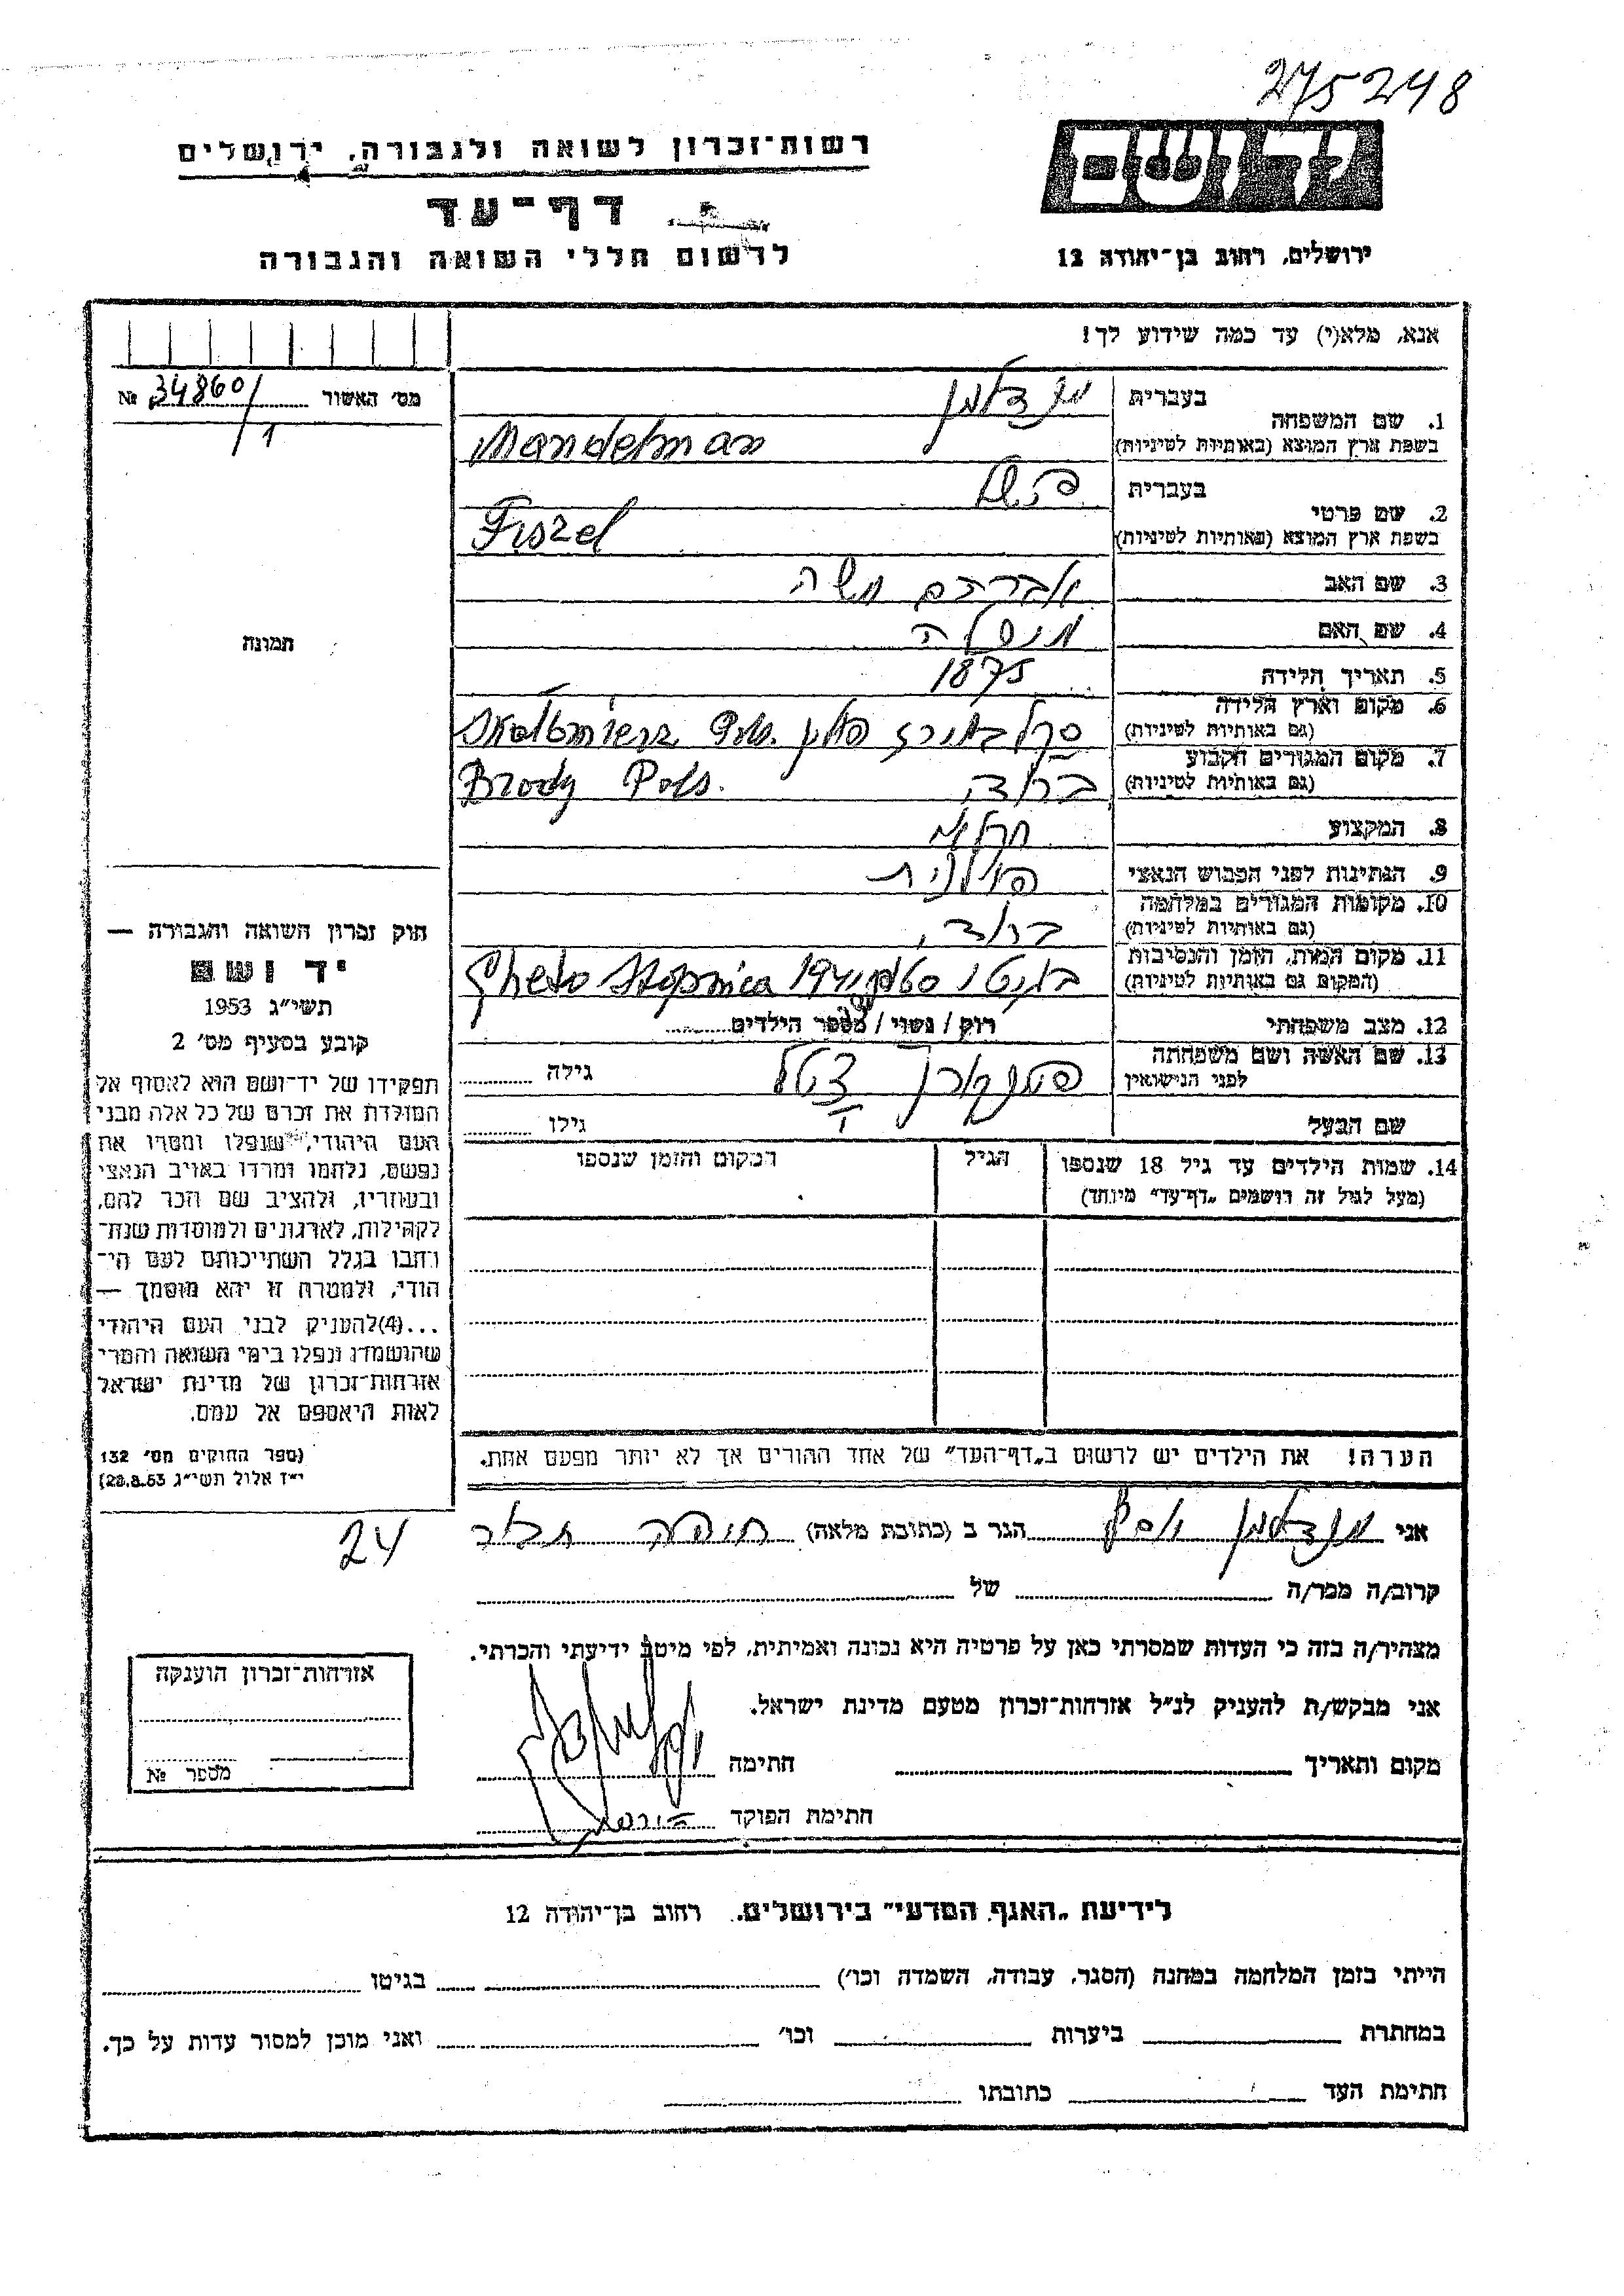 275248
רשות־זכרון לשואה ולגבורה, ירושלים
יד ושם
דף־עד
לרשום חללי השואה והגבורה
ירושלים, רחוב בן־יהודה 12
אנא, מלא(י) עד כמה שידוע לך!
מס׳ האשור 34860/1 №
1. שם המשפחה
בעברית מנדלמן
בשפת ארץ המוצא (באותיות לטיניות) Mandelman
2. שם פרטי
בעברית פישל
בשפת ארץ המוצא (באותיות לטיניות) Fiszel
3. שם האב אברהם משה
4. שם האם
5. תאריך הלידה 1875
6. מקום וארץ הלידה
(גם באותיות לטיניות) פולין Skalbmierz Pols.
7. מקום המגורים הקבוע
(גם באותיות לטיניות) ברודי Brody Pols.
8. המקצוע חקלאי
9. הנתינות לפני הכבוש הנאצי פולנית
10. מקומות המגורים במלחמה
(גם באותיות לטיניות) ברודי
11. מקום המות, הזמן והנסיבות
(המקום גם באותיות לטיניות) בגיטו Gheto Stopnica 194
12. מצב משפחתי רוק / נשוי / מספר הילדים
13. שם האשה ושם משפחתה
לפני הנישואין גילה
שם הבעל גילו
14. שמות הילדים עד גיל 18 שנספו
(מעל לגיל זה רושמים „דף־עד” מיוחד)
הגיל
המקום והזמן שנספו
הערה! את הילדים יש לרשום ב„דף־העד” של אחד ההורים אך לא יותר מפעם אחת.
תמונה
חוק זכרון השואה והגבורה —
יד ושם
תשי״ג 1953
קובע בסעיף מס׳ 2
תפקידו של יד־ושם הוא לאסוף אל
המולדת את זכרם של כל אלה מבני
העם היהודי, שנפלו ומסרו את
נפשם, נלחמו ומרדו באויב הנאצי
ובעוזריו, ולהציב שם הכר להם,
לקהילות, לארגונים ולמוסדות שנח־
רבו בגלל השתייכותם לעם הי־
הודי, ולמטרה זו יהא מוסמך —
...(4)להעניק לבני העם היהודי
שהושמדו ונפלו בימי השואה והמרי
אזרחות־זכרון של מדינת ישראל
לאות היאספם אל עמם.
(ספר החוקים מס׳ 132
י״ז אלול תשי״ג 28.8.53)
24
אני מנדלמן הגר ב (כתובת מלאה)
קרוב/ה מכר/ה של
מצהיר/ה בזה כי העדות שמסרתי כאן על פרטיה היא נכונה ואמיתית, לפי מיטב ידיעתי והכרתי.
אני מבקש/ת להעניק לנ״ל אזרחות־זכרון מטעם מדינת ישראל.
מקום ותאריך חתימה
חתימת הפוקד
אזרחות־זכרון הוענקה
מספר №
לידיעת „האגף המדעי” בירושלים. רחוב בן־יהודה 12
הייתי בזמן המלחמה במחנה (הסגר, עבודה, השמדה וכו׳) בגיטו
במחתרת ביערות וכו׳ ואני מוכן למסור עדות על כך.
חתימת העד כתובתו